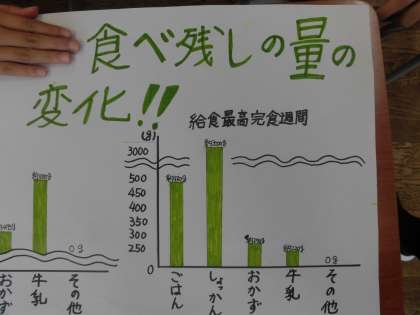 食べ残しの量の
変化!!
給食最高完食週間
(g)
3000
500
450
400
350
300
250
0
おかず
牛乳
0g
その他
ごはん
しょっかん
おかず
牛乳
0g
その他